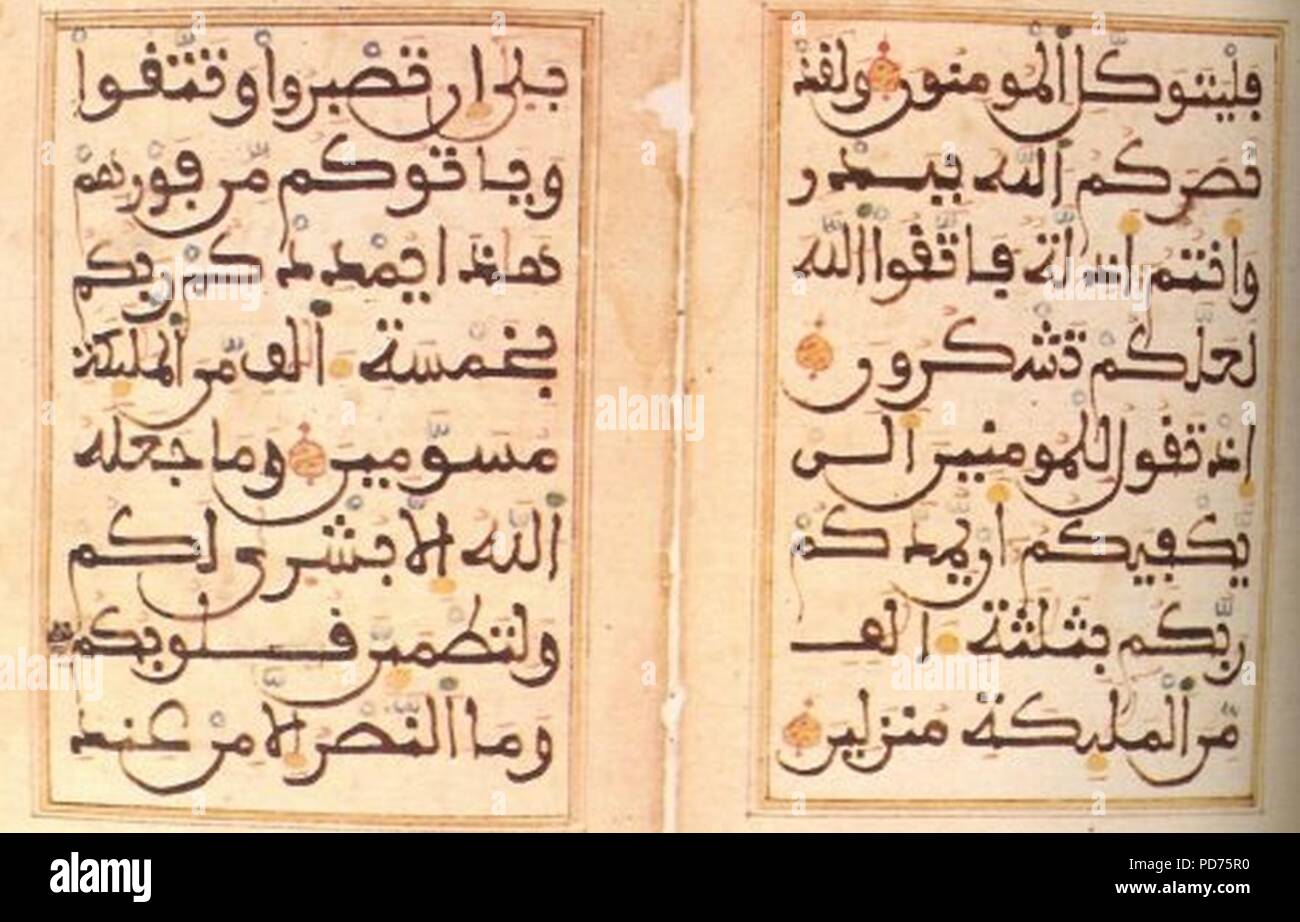 فليتوكل المومنون ولقد
نصركم الله ببدر
وانتم اذلة فاتقوا الله
لعلكم تشكرون
اذ تقول للمومنين الن
يكفيكم ان يمدكم
ربكم بثلثة الف
من الملىكة منزلين
بلى ان تصبروا وتتقوا
وياتوكم من فورهم
هذا يمددكم ربكم
بخمسة الف من الملىكة
مسومين وما جعله
الله الا بشرى لكم
ولتطمىن قلوبكم
وما النصر الا من عند
alamy
a
alamy stock photo
PD75R0
www.alamy.com